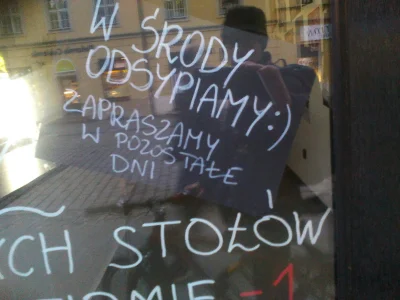 W ŚRODY
ODSYPIAMY:)
ZAPRASZAMY
W POZOSTAŁE
DNI
YCH STOŁÓW
ZIOMIE -1